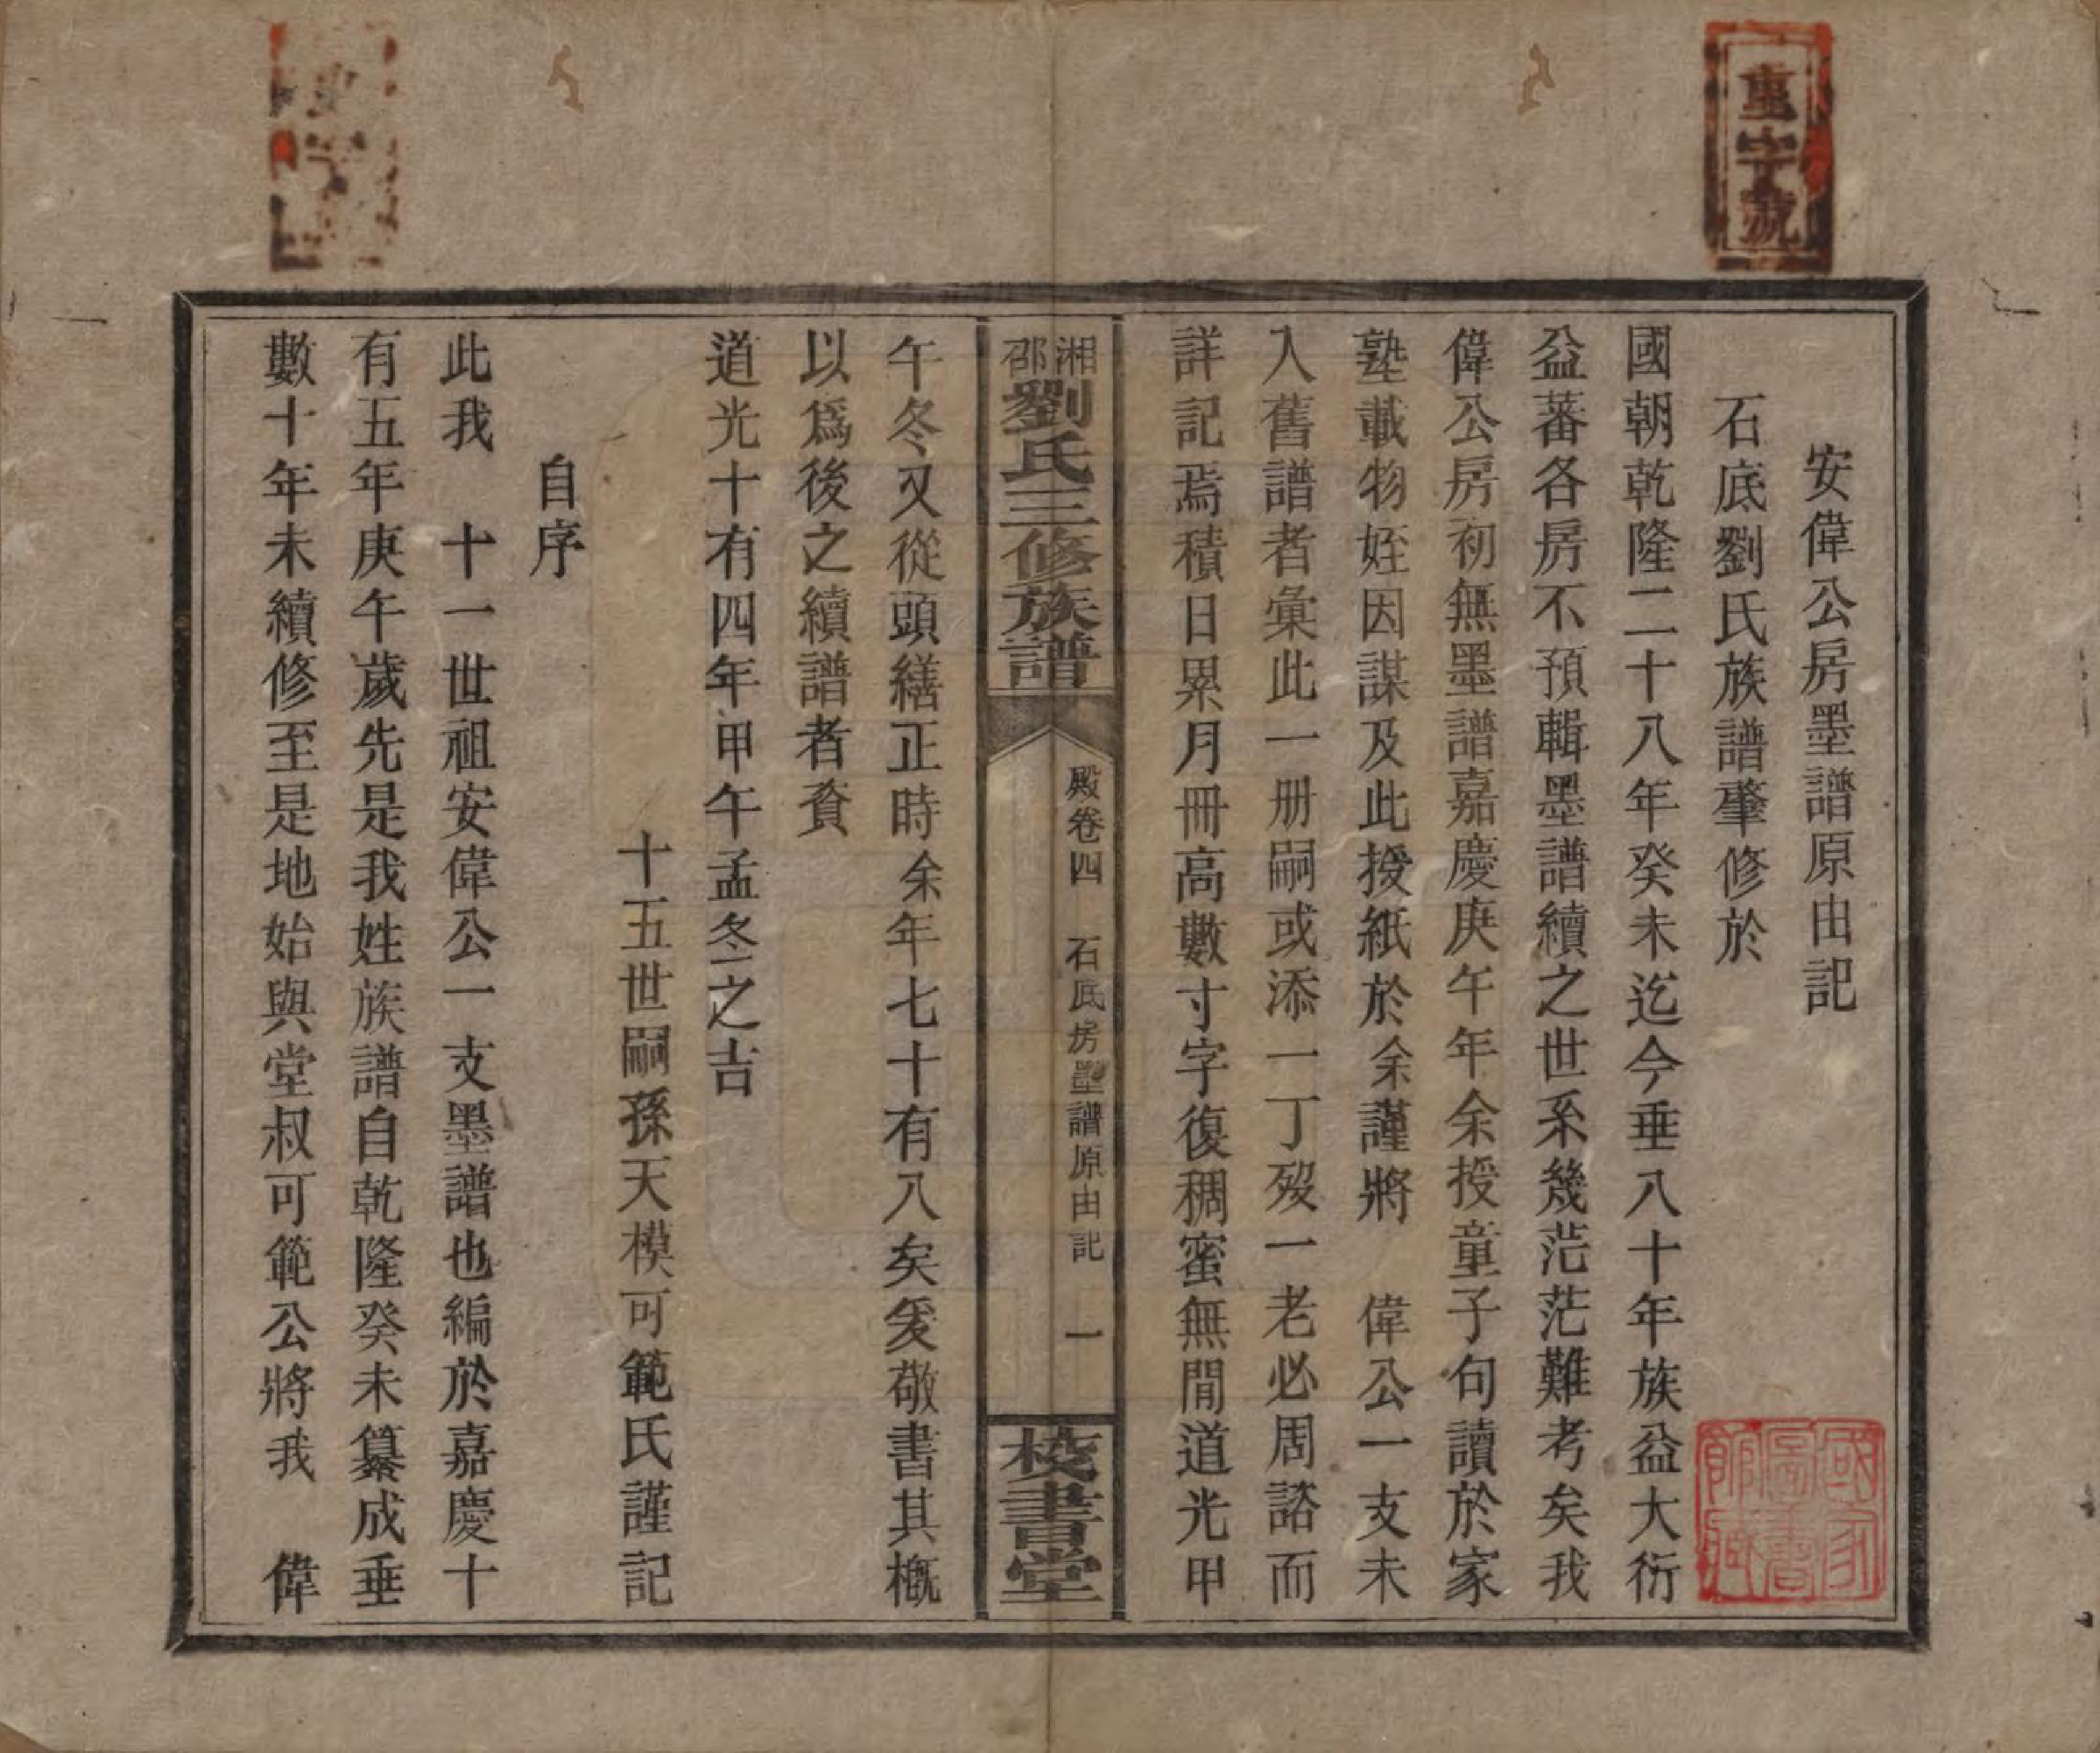 重字號
安偉公房墨譜原由記
石底劉氏族譜肇修於
國朝乾隆二十八年癸未迄今垂八十年族益大衍
益蕃各房不預輯墨譜續之世系幾茫茫難考矣我
偉公房初無墨譜嘉慶庚午年余授童子句讀於家
塾載物姪因謀及此授紙於余謹將　偉公一支未
入舊譜者彙此一册嗣或添一丁歿一老必周諮而
詳記焉積日累月冊高數寸字復稠蜜無間道光甲
湘邵劉氏三修族譜
殿卷四　石底房墨譜原由記　一
校書堂
午冬又從頭繕正時余年七十有八矣爰敬書其概
以爲後之續譜者資
道光十有四年甲午孟冬之吉
十五世嗣孫天模可範氏謹記
自序
此我　十一世祖安偉公一支墨譜也編於嘉慶十
有五年庚午歲先是我姓族譜自乾隆癸未纂成垂
數十年未續修至是地始與堂叔可範公將我　偉
國家圖書館藏